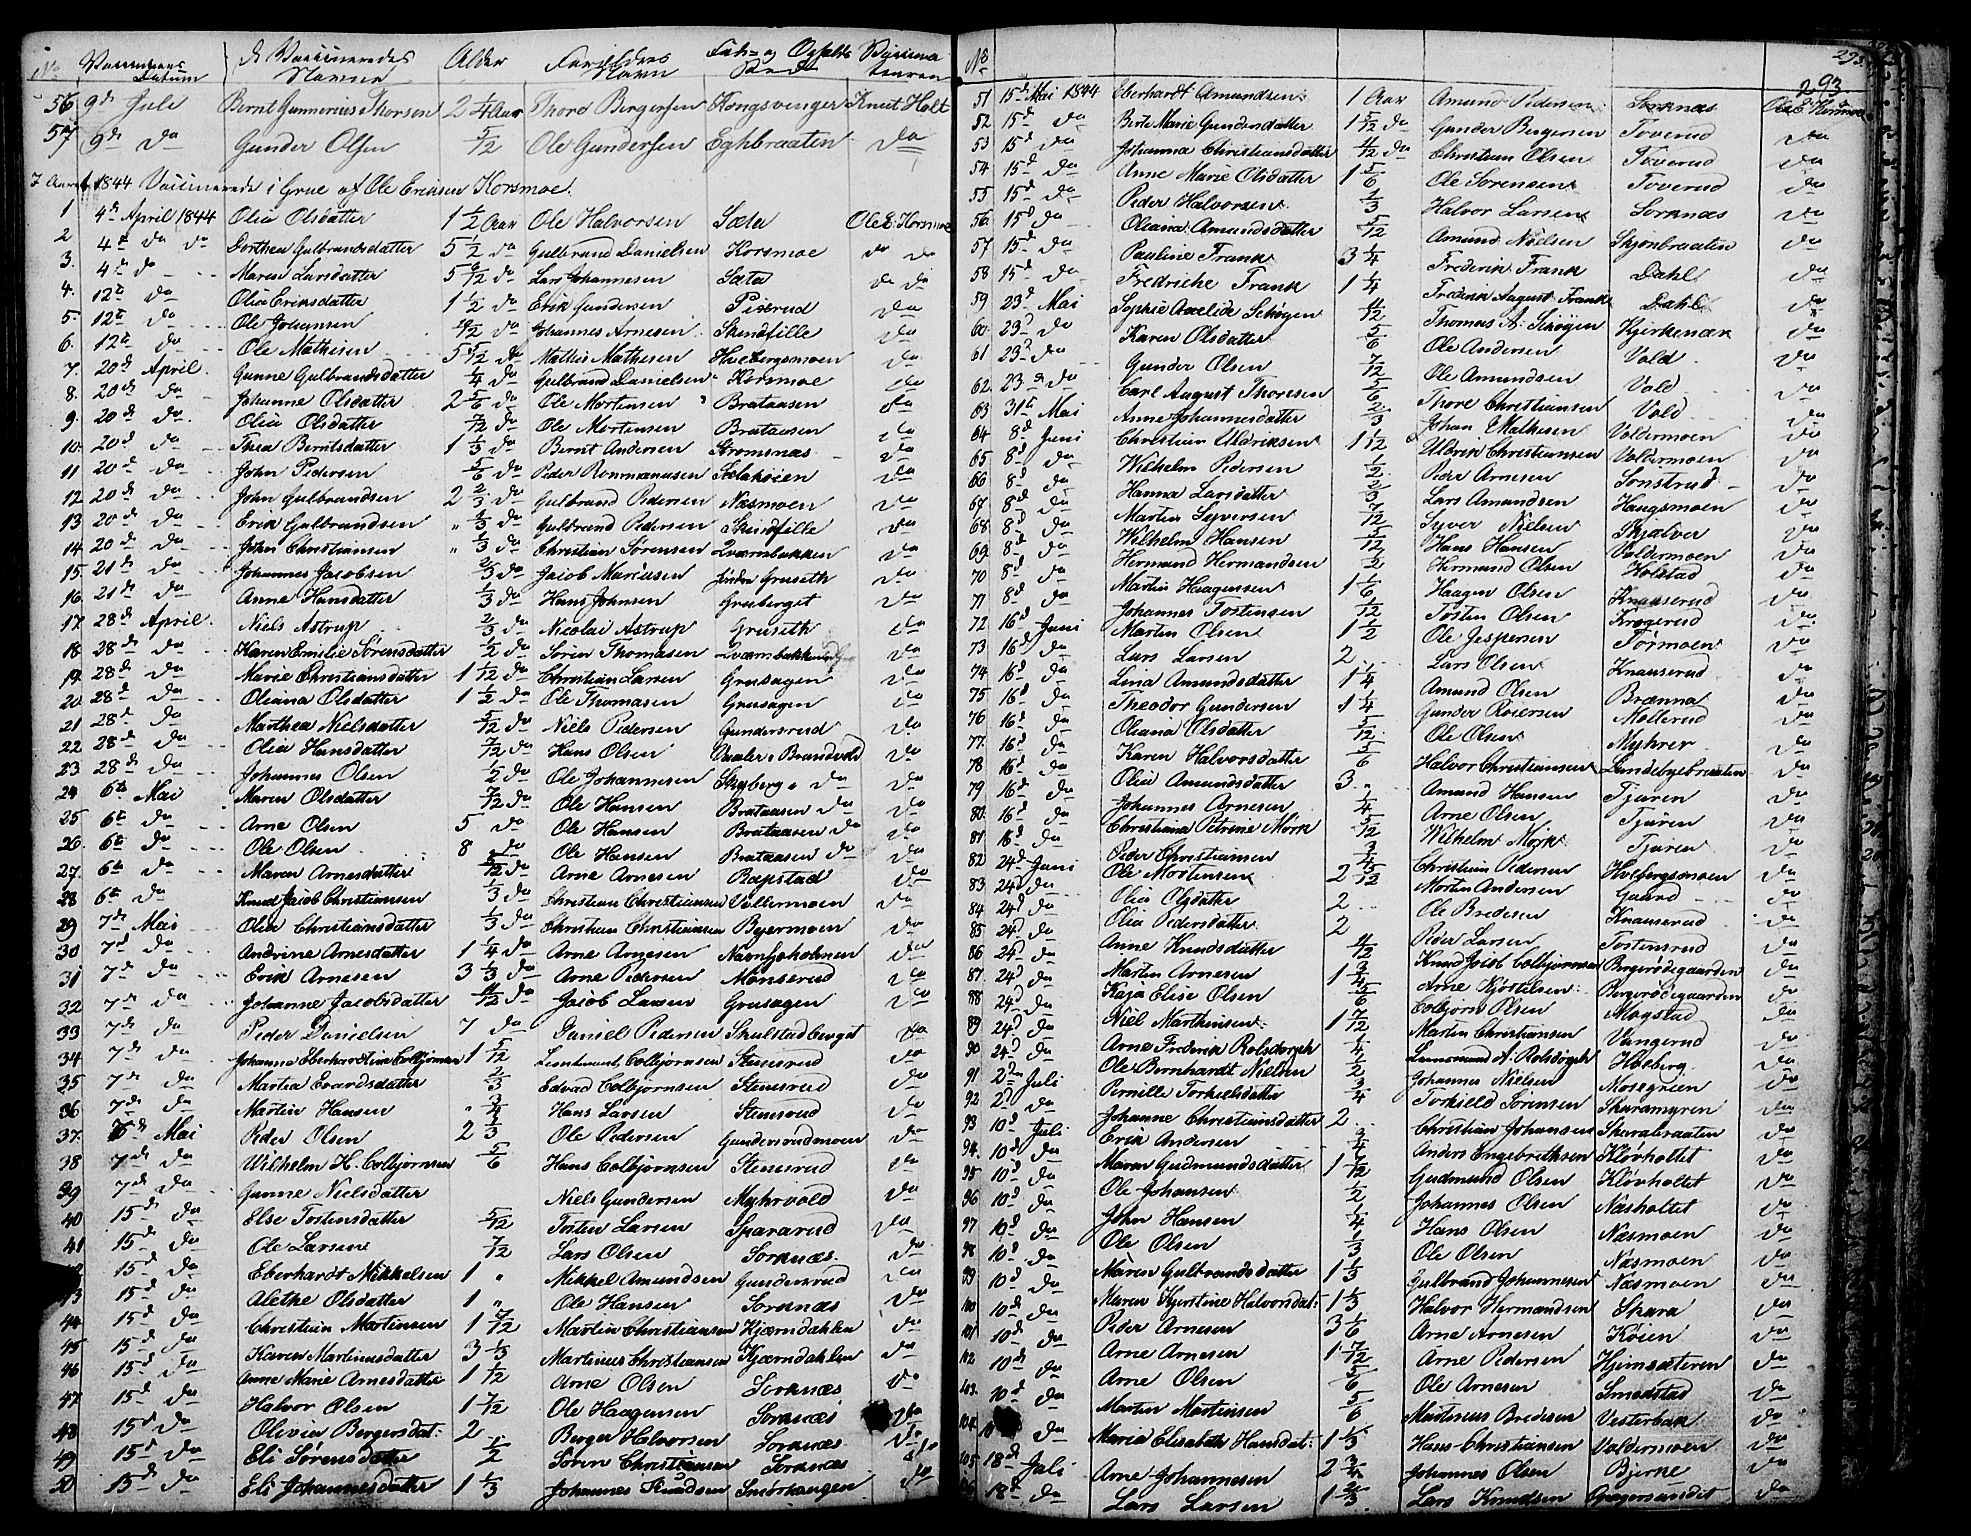 No Vaccineres Datum De Vaccineredes Navne Alder Forældres Navn Føde- og Opholds Sted Vaccinateuren
56 9de Juli Bernt Gunnerius Thorsen 2 1/4 Aar Thord Bergersen Kongsvinger Knut Holt
57 9de do Gunder Olsen 5/12 Ole Gundersen Eghbraaten do
I Aaret 1844 Vaccinerede i Grue af Ole Eriksen Korsmoe.
1 4de April 1844 Olia Olsdatter 1 1/2 Aar Ole Halvorsen Sæter Ole E. Korsmoe
2 4de do do Dorthea Gulbrandsdatter 5 1/2 do Gulbrand Danielsen Korsmoe do do
3. 4de do Maren Larsdatter Lars Johannesen Sæta do do
4. 12te do Olia Eriksdatter 1 1/2 do Erik Gundersen Piserud do
5. 12te do Ole Johansen do Johannes Arnesen Skindfille do
6. 12te do Ole Mathisen do Mathis Mathesen Hvebergsmoen do
7. 20de April. Gunne Gulbrandsdatter 1/4 do Gulbrand Danielsen Korsmoe do
8. 20de do Johanne Olsdatter 2 5/6 do Ole Mortensen Brataasen do
9. 20de do Olia Olsdatter 7/12 do Ole Mortensen Brataasen do
10. 20de do Thea Berntsdatter 1 1/3 do Bernt Andersen Stromsnæs do
11 20de do John Pedersen 5/6 do Peder do
12 20de do John Gulbrandsen 2 2/3 do Gulbrand Pedersen Næsmoen do
13 20de do Erik Gulbrandsen " 1/3 do Gulbrand Pedersen Skindfille do
14 20de do John Christiansen " 1/3 do Christian Sørensen Qværnbakken do
15. 21de do Johannes Jacobsen 2/3 do Jacob Mariusen Grueseth do
16. 21de do Anne Hansdatter 1/3 do Hans Johnsen Grueberget do
17. 28de April. Niels Astrup 2/3 do Nicolai Astrup Grueseth do
18 28de do Karen Emilie Sørensdatter 1/2 do Sørin Thomasen Qværnbakken do
19. 28de do Marie Christiansdatter 1 1/12 do Christian Larsen Gruesagen do
20. 28de do Oliana Olsdatter 1 1/2 do Ole Thomasen Gruesagen do
21 28de do Marthea Nielsdatter 5/12 do Niels Pedersen Gundersrud do
22 28de do Olia Hansdatter 7/12 do Hans Olsen Vaaler i Brandvold do
23 28de do Johannes Olsen 1/2 do Ole Johannesen Skyberg i do do
24 6te Mai Maren Olsdatter 7/12 do Ole Hansen Brataasen do do
25 6te do Arne Olsen 5 do Ole Hansen Brataasen do do
26. 6te do Ole Olsen 8 do Ole Hansen Brataasen do do
27. 6te do Maren Arnesdatter 5/12 do Arne Arnesen Rapstad do
28 6te do Knud Jacob Christiansen 1/3 do Christian Christiansen Vollermoen do
29 7de Mai Olia Christiansdatter 1/3 do Christian Christiansen Byermoen do
30 7de do Andrine Arnesdatter 1 1/4 do Arne Arnesen do
31 7de do Erik Arnesen 3 1/3 do Arne Pedersen Monserud do
32 7de do Johanne Jacobsdatter 11/12 do Jacob Larsen Gruesagen do
33 7de do Peder Danielsen 7 do Daniel Pedersen Skulstadberget do
34 7de do Johanne Eberhardtine Colbjørnsen 1 5/12 Lieutenant Colbjørnsen Stensrud do
35 7de do Martia Evardsdatter 2/3 Edvad Colbjørnsen Stensrud do
36 7de do Martin Hansen " 3/4 Hans Larsen Stensrud do
37. Mai Peder Olsen 2 1/3 Ole Pedersen Gundersrudmoen do
38 7de do Wilhelm H. Colbjørnsen 5/6 Hans Colbjørnsen Stensrud do
39 7de do Gunne Nielsdatter Niels Gundersen Myhrvold do
40 15de do Else Tostensdatter 5/12 Tosten Larsen Spararud do
41 15de do Ole Larsen 7/12 Lars Olsen Sorknæs do
15de do Eberhardt Mikkelsen 1 " Mikkel Amundsen Gundersrud do
43 15de do Alethe Olsdatter 1 " Ole Hansen Sorknæs do
44 15de do Christian Martinsen 1 7/12 Martin Christiansen Kjærndahlen do
45 15de do Karen Martinusdatter 3 1/3 Martinus Christiansen Kjærndahlen do
46 15de do Anne Marie Arnesdatter 1 1/2 Arne Olsen Sorknæs do
47 15de do Halvor Olsen 1 7/12 Ole Haagensen Sorknæs do
48 15de do Olivia Bergersdat: 2 Berger Halvorsen Sorknæs do
49 15de do Eli Sørensdatter 1/2 Sørin Christiansen Sorknæs do
50 15de do Eli Johannesdatter 1 1/3 Johannes Knudsen Smorhaugen do
No 293
293
51 15de Mai 1844 Eberhardt Amundsen 1 Aar Amund Pedersen Sorknæs Ole E. Korsmoe
52. 15de do Berte Marie Gundersdatter 1 5/12 do Gunder Bergersen Toverud do
53 15de do Johanna Christiansdatter 4/12 do Christian Olsen Toverud do
54 15de do Anne Marie Olsdatter 1 5/6 Ole Sorensen Toverud do
55. 15de do Peder Halvorsen 1/3 Halvor Larsen Sorknæs do
56. 15de do Oliana Amundsdatter 5/12 Amund Nielsen Skjonbraaten do
57. 15de do Pauline Frank 3 1/4 Frederik Frank Dahl do
58 15de do Fredriche Frank 1 1/4 Frederik August Frank Dahl do
59 23de Mai Sophie Axelide Schøyen 11/12 Thomas A. Schøyen Kjerkenær do
60. 23de do Karen Olsdatter 5/6 Ole Andersen Vold do
61 23de do Gunder Olsen 7/12 Ole Amundsen Vold do
62. 23de do Carl August Thoresen 5/6 Thore Christiansen Vold do
63 31te Mai Anne Johannesdatter 2/3 Johan Mathesen Voldermoen do
64 8de Juni Christian Uldriksen 1 1/12 Uldrik Christiansen Voldermoen do
65 8de do Wilhelm Pedersen 1/2 Peder Arnesen Sonsterud do
66 8de do Hanna Larsdatter 2/3 Lars Amundsen Haugsmoen do
67. 8de do Martin Syversen 7/12 Syver Nielsen Skjølver do
68. 8de do Wilhelm Hansen Hans Hansen Voldermoen do
69. 8de do Hermund Hermandsen 1/2 Hermund Olsen Holstad do
70 8de do Martin Haagensen 1 1/6 Haagen Olsen Knauserud do
71 8de do Johannes Tostensen Tosten Olsen Krogerud do
72 16de Juni Martin Olsen 1 1/2 Ole Jespersen Tørmoen do
73 16de do Lars Larsen 2 Lars Olsen Knauserud do
74 16de do Lina Amundsdatter 1 1/4 Amund Olsen Brænna do
75 16de do Theodor Gundersen 1 1/4 Gunder Reiersen Mollerud do
76 16de do Oliana Olsdatter 5/12 Ole Olsen Myhrer do
77. 16de do Karen Halvorsdatter 5/6 Halvor Christiansen Lundebyebraaten do
78 16de do Olia Amundsdatter 3 " Amund Hansen Tjuren do
79 16de do Johannes Arnesen 1/4 Arne Olsen Tjuren do
80. 16de do Christiana Petrine Mørk 5/12 Wilhelm Mørk Tjuren do
81. 16de do Peder Christiansen 3/4 Christian Pedersen Hvebergsmoen do
82 24de Juni Ole Mortensen 2 5/12 Morten Andersen Gaard do
83. 24de do Olia Olsdatter 2 Ole Bredesen Knauserud do
84 24de do Olia Pedersdatter 2 Peder Larsen Tostensrud do
85 24de do Anne Knudsdatter 11/12 Knud Jacob Colbjørnsen Bergerødegaarden do
86 24de do Martin Arnesen 1 3/4 Arne Kjostelsen Bergerødegaarden do
87. 24de do Kaja Elise Olsen 5/6 Colbjørn Olsen Mogstad do
88 24de do Niel Marthinsen 1 7/12 Martin Christiansen Vangerud do
89 24de do Arne Frederik Rolsdorph 1/4 A. Rolsdorph Hveberg do
90 24de do Ole Bernhardt Nielsen 1/2 Johannes Nielsen Mosegreen do
91 2den Juli Pernille Torkielsdatter 3/4 Torkield Sørensen Skaramyren do
92 2de do Johanne Christiansdatter 2 Christian Johansen Skarabraaten do
93 10de Juli Erik Andersen 3/4 Anders Engebrethsen Kløvholtet do
94. 10de do Maren Gudmundsdatter 1 7/12 Gudmund Olsen Kløvholtet do
95 10de do Ole Johansen 1/2 Johannes Olsen Næsholtet do
96 10de do John Hansen 1/4 Hans Olsen Næsmoen do
97 10de do Ole Olsen 1/3 Ole Olsen Næsmoen do
98 10de do Maren Gulbrandsdatter 1 1/3 Gulbrand Johannesen Næsmoen do
99 10de do Maren Kjerstine Halvorsdat: 1 1/3 Halvor Hermandsen Skara do
100 10de do Peder Arnesen 3 1/6 Arne Arnesen Køien do
101 10de do Arne Arnesen 1 7/12 Arne Pedersen Hjemsæteren do
102. 10de do Arne Olsen 5/6 Ole Arnesen Smedstad do
103. 10de do Martin Martinsen 5/6 Martinus Bredesen Vesterbak do
104 do Maria Elisabeth Hansdat: 1 1/3 Hans Christiansen Voldermoen do
105 18de Juli Arne Johannesen 2 3/4 Johannes Olsen Bjerke do
18de do Lars Larsen 1 2/3 Lars Knudsen do